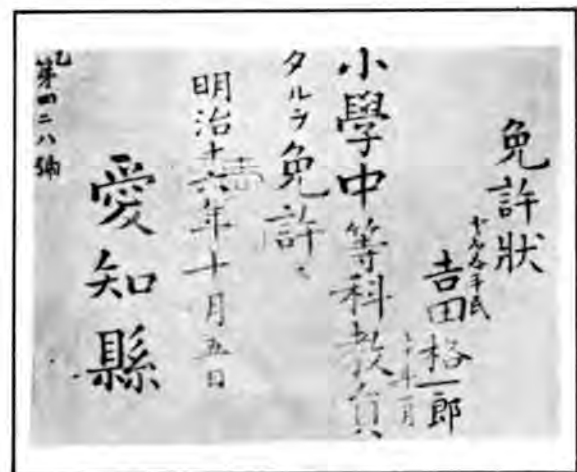 免許狀
吉田格一郎
小學中等科教員
タルヲ免許ス
明治十六年十月五日
愛知縣
乙第四二八號